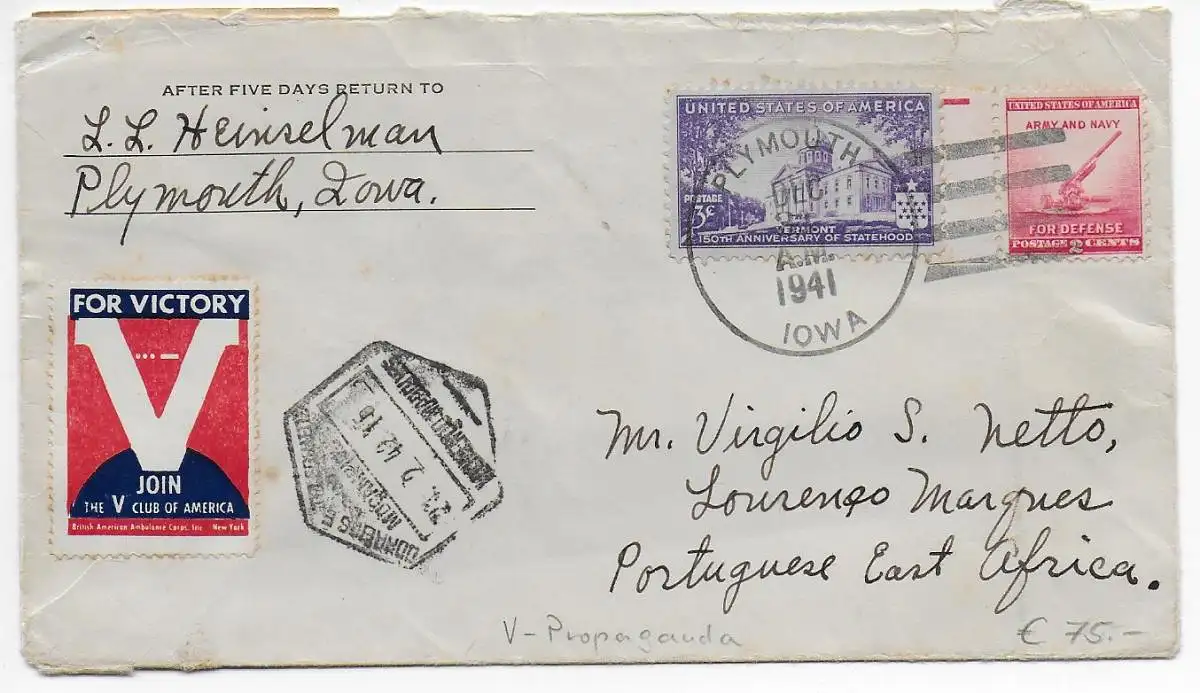 AFTER FIVE DAYS RETURN TO
L. L. Heinselman
Plymouth, Iowa.
UNITED STATES OF AMERICA
POSTAGE
3¢
VERMONT
150TH ANNIVERSARY OF STATEHOOD
UNITED STATES OF AMERICA
ARMY AND NAVY
FOR DEFENSE
POSTAGE 2 CENTS
PLYMOUTH
DEC
A.M.
1941
IOWA
FOR VICTORY
V
JOIN
THE V CLUB OF AMERICA
British American Ambulance Corps. Inc. New York
CORREIOS E
21. 2. 42 16
Mr. Virgilio S. Netto,
Lourenço Marques
Portuguese East Africa.
V - Propaganda
€ 75.-